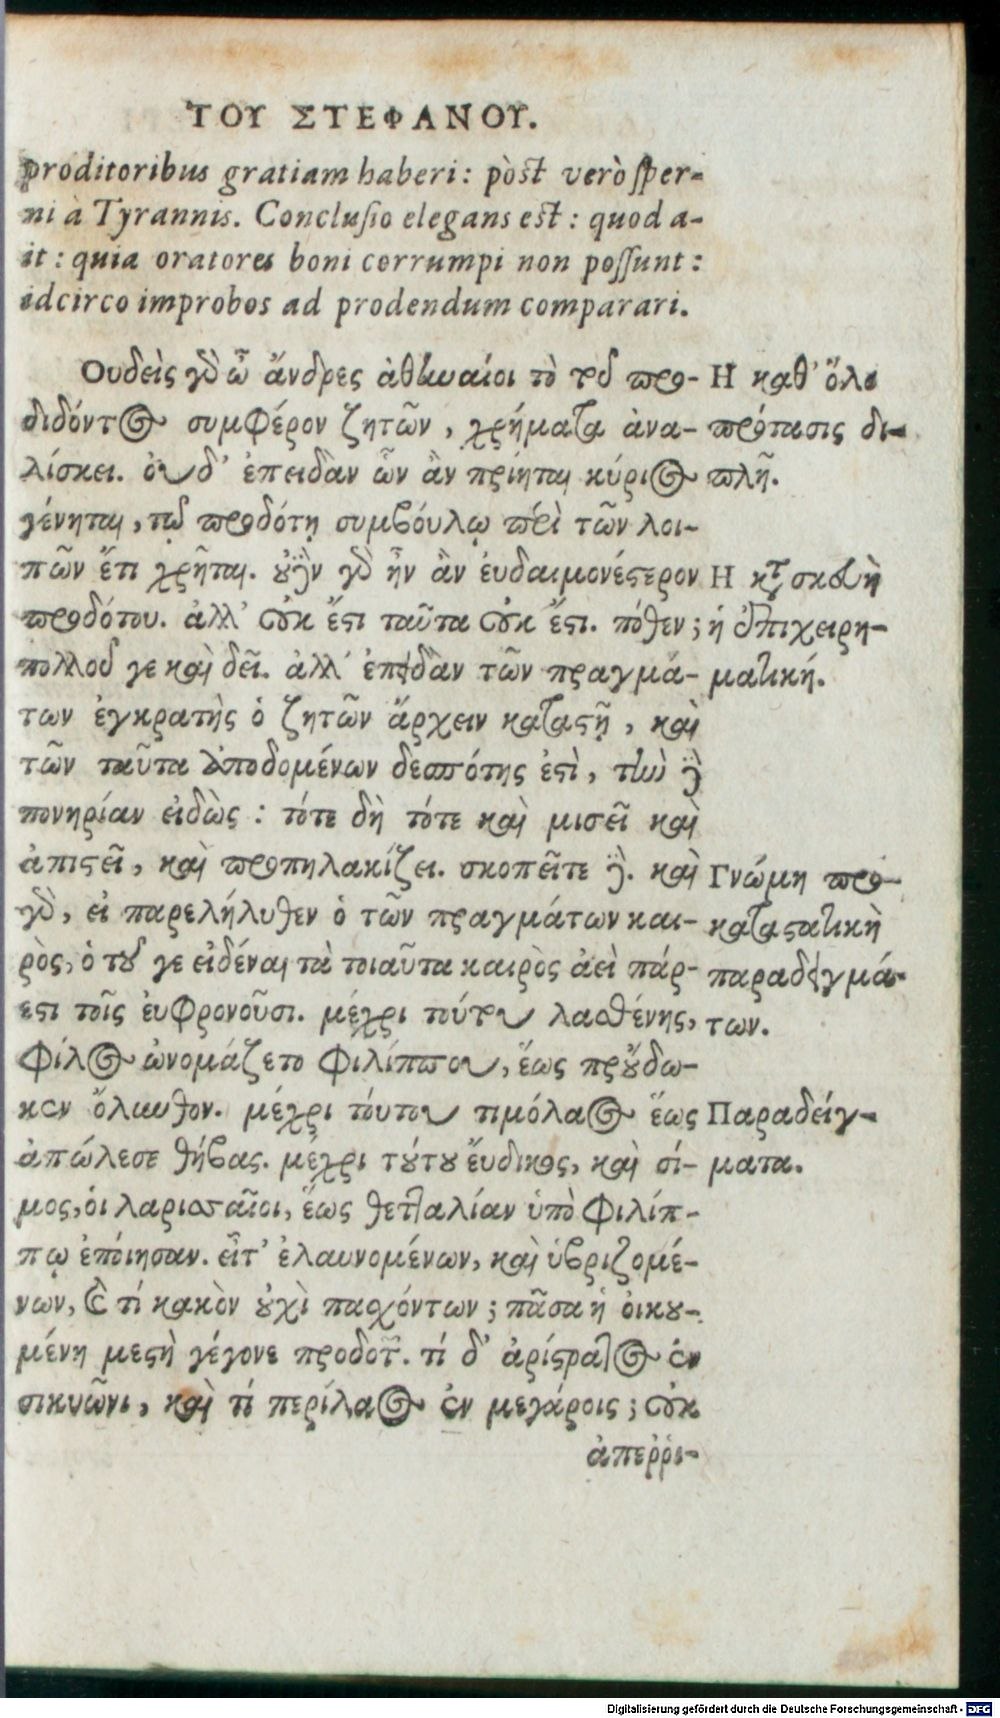 ΤΟΥ ΣΤΕΦΑΝΟΥ.
proditoribus gratiam haberi: pòst verò sper-
ni à Tyrannis. Conclusio elegans est: quod a-
it: quia oratores boni corrumpi non possunt:
idcirco improbos ad prodendum comparari.
Ουδεὶς γὸ ὦ ἄνδρες ἀθηναίοι τὸ τοῦ προ-
διδόντος συμφέρον ζητῶν, χρήματα ἀνα-
λίσκει. ὀυδ' ἐπειδὰν ὧν ἂν πρίηται κύριος
γένηται, τῷ προδότῃ συμβόυλῳ περὶ τῶν λοι-
πῶν ἔτι χρῆται. οὐδὲν γὸ ἦν ἂν ἐυδαιμονέστερον
προδότου. ἀλλ' οὐκ ἔστι ταῦτα οὐκ ἔστι. πόθεν;
πολλοῦ γε καὶ δεῖ. ἀλλ' ἐπειδὰν τῶν πραγμά-
των ἐγκρατὴς ὁ ζητῶν ἄρχειν καταστῇ, καὶ
τῶν ταῦτα ἀποδομένων δεσπότης ἐστὶ, τὴν δὲ
πονηρίαν εἰδὼς: τότε δὴ τότε καὶ μισεῖ καὶ
ἀπιστεῖ, καὶ προπηλακίζει. σκοπεῖτε δὲ. καὶ
γὸ, εἰ παρελήλυθεν ὁ τῶν πραγμάτων και-
ρὸς, ὁ τοῦ γε εἰδέναι τὰ τοιαῦτα καιρὸς ἀεὶ πάρ-
εστι τοῖς ἐυφρονοῦσι. μέχρι τούτου λασθένης,
φίλος ὠνομάζετο φιλίππου, ἕως προὔδω-
κεν ὄλυνθον. μέχρι τόυτου τιμόλαος ἕως
ἀπώλεσε θήβας. μέχρι τούτου ἔυδικος, καὶ σί-
μος, ὁι λαρισσαῖοι, ἕως θετταλίαν ὑπὸ φιλίπ-
πῳ ἐπόιησαν. εἶτ' ἐλαυνομένων, καὶ ὑβριζομέ-
νων, καὶ τί κακὸν οὐχὶ πασχόντων; πᾶσα ἡ ὀικου-
μένη μεστὴ γέγονε προδοτῶν. τί δ' ἀρίστρατος ἐν
σικυῶνι, καὶ τί περίλαος ἐν μεγάροις; οὐκ
ἀπερρι-
Η καθ' ὅλου
πρότασις δι-
πλῆ.
Η κατασκευὴ
ἡ ἐπιχειρη-
ματική.
Γνώμη προ-
καταστατικὴ
παραδειγμά-
των.
Παραδείγ-
ματα.
Digitalisierung gefördert durch die Deutsche Forschungsgemeinschaft - DFG